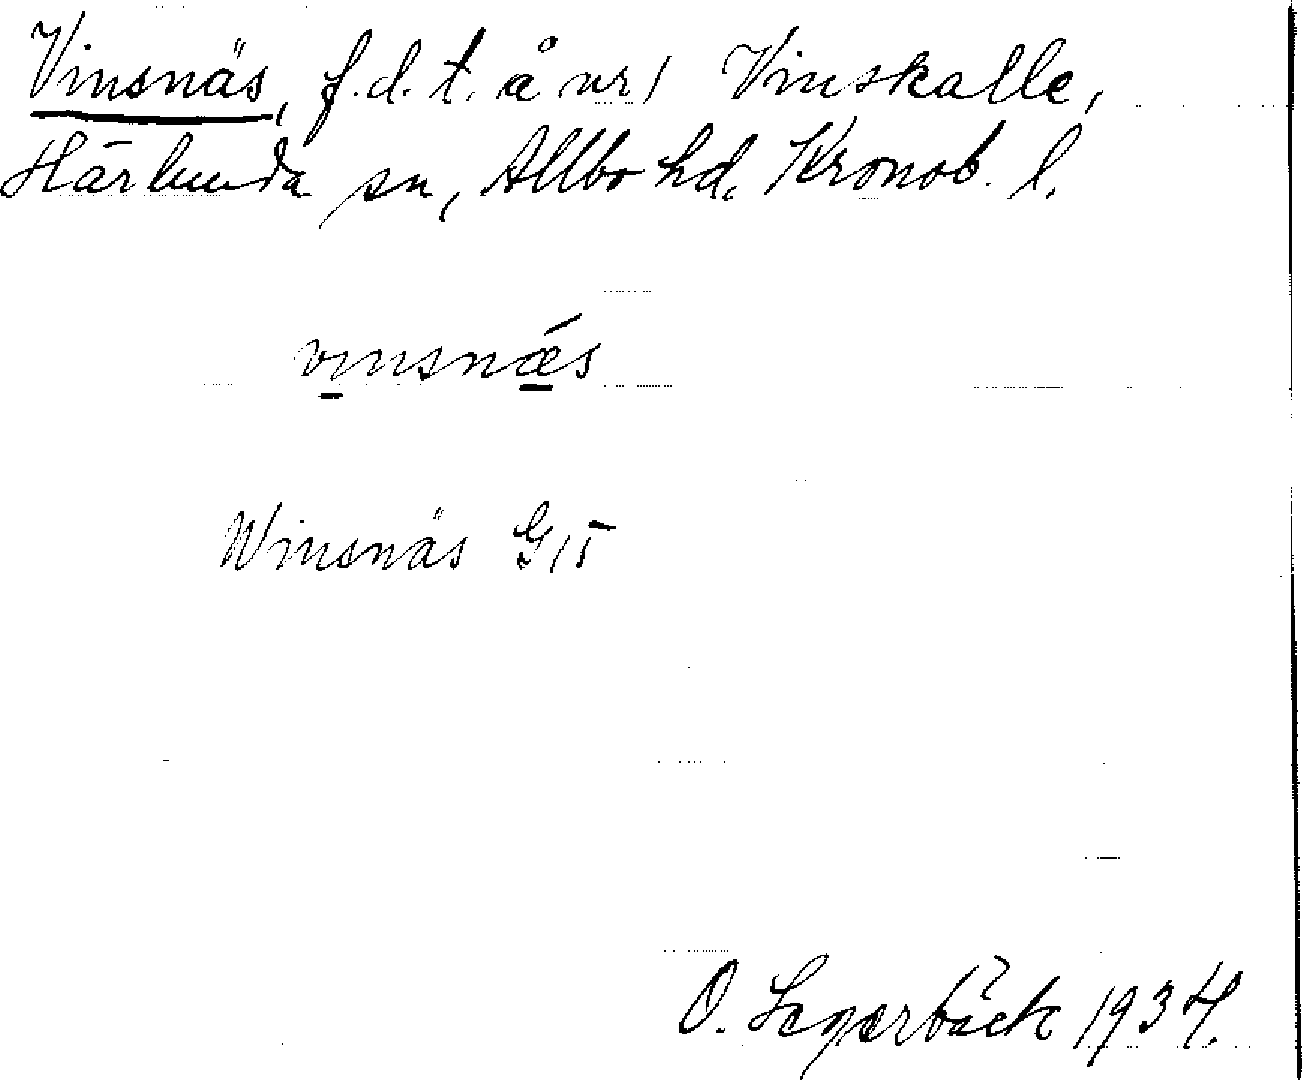 Vinsnäs, f.d.t. å nr 1 Vinskalle,
Härlunda sn, Allbo hd. Kronob. l.
vinsnǽs
Winsnäs G 15
O. Lagerbäck 1934.